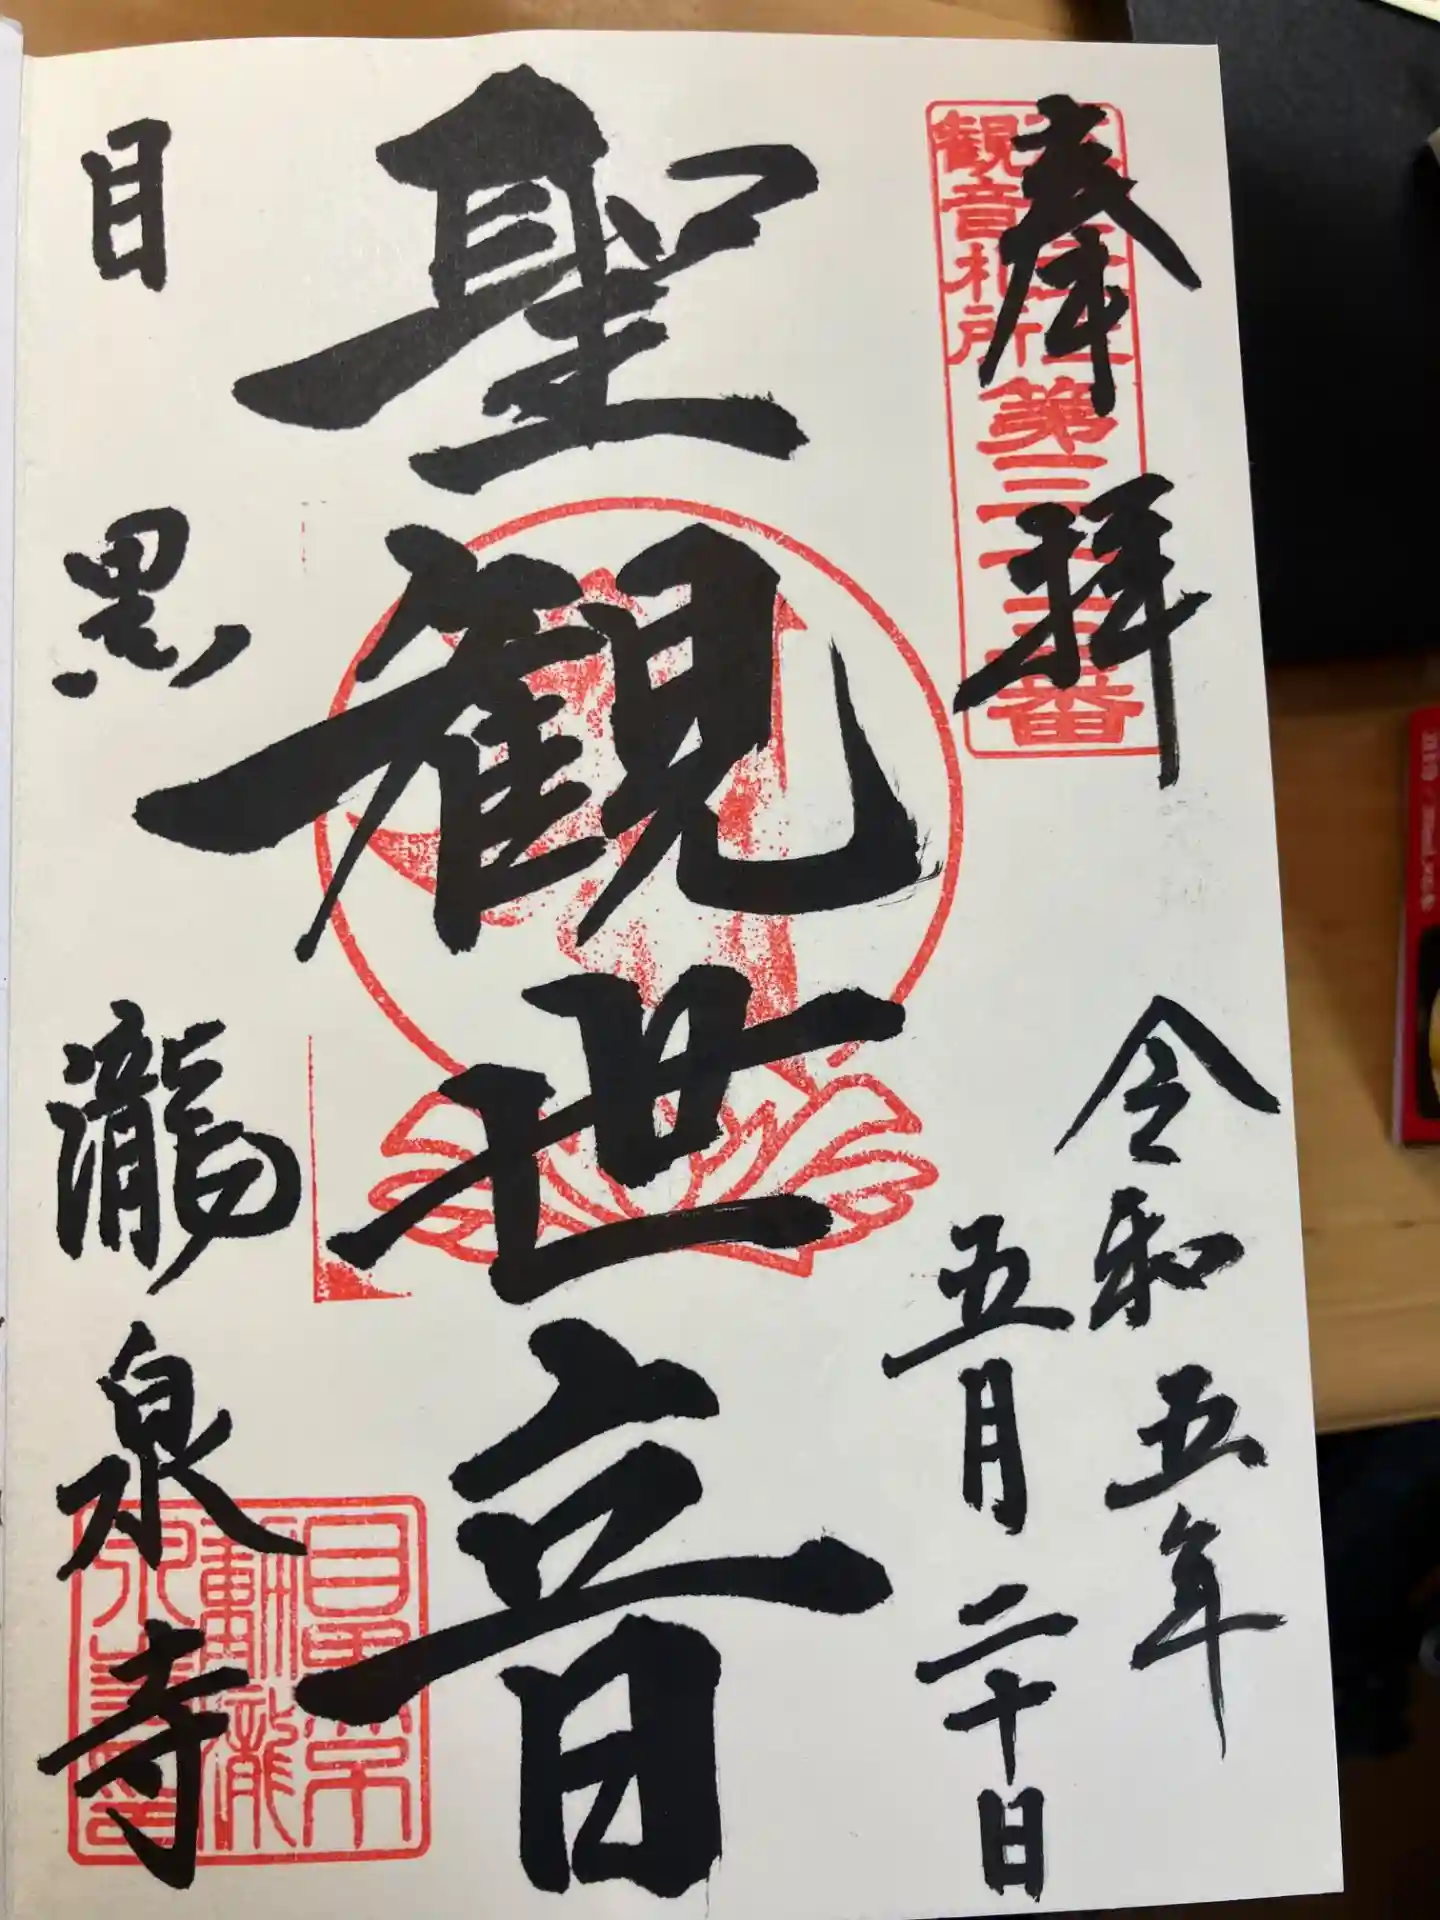 奉拝
観音札所第三十三番
令和五年
五月二十日
聖観世音
目黒
瀧泉寺